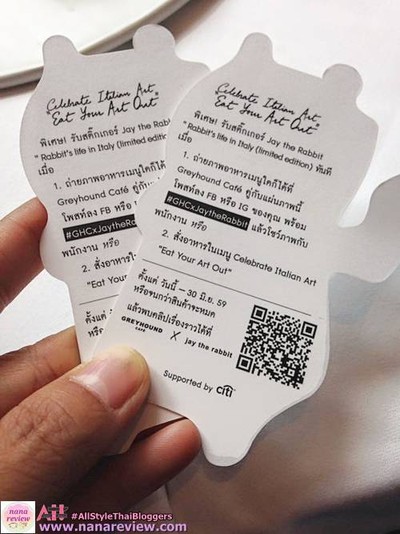 Celebrate Italian Art
"Eat Your Art Out"
พิเศษ! รับสติ๊กเกอร์ Jay the Rabbit
" Rabbit's life in Italy (limited edition)
เมื่อ
1. ถ่ายภาพอาหารเมนูใดก็ได้ที่
Greyhound Café คู่กับแผ่น
โพสท์ลง FB หรือ IG ของ
#GHCxJaytheRabbit
พนักงาน หรือ
2. สั่งอาหารในเมนู
"Eat Your Art
ตั้งแต่ วัน
หรือ
Celebrate Italian Art
"Eat Your Art Out"
พิเศษ! รับสติ๊กเกอร์ Jay the Rabbit
" Rabbit's life in Italy (limited edition) ทันที
เมื่อ
1. ถ่ายภาพอาหารเมนูใดก็ได้ที่
Greyhound Café คู่กับแผ่นภาพนี้
โพสท์ลง FB หรือ IG ของคุณ พร้อม
#GHCxJaytheRabbit แล้วโชว์ภาพกับ
พนักงาน หรือ
2. สั่งอาหารในเมนู Celebrate Italian Art
"Eat Your Art Out"
ตั้งแต่ วันนี้ – 30 มิ.ย. 59
หรือจนกว่าสินค้าจะหมด
แล้วพบคลิปเรื่องราวได้ที่
GREYHOUND CAFÉ X jay the rabbit
Supported by citi
nana review
#AllStyleThaiBloggers
www.nanareview.com